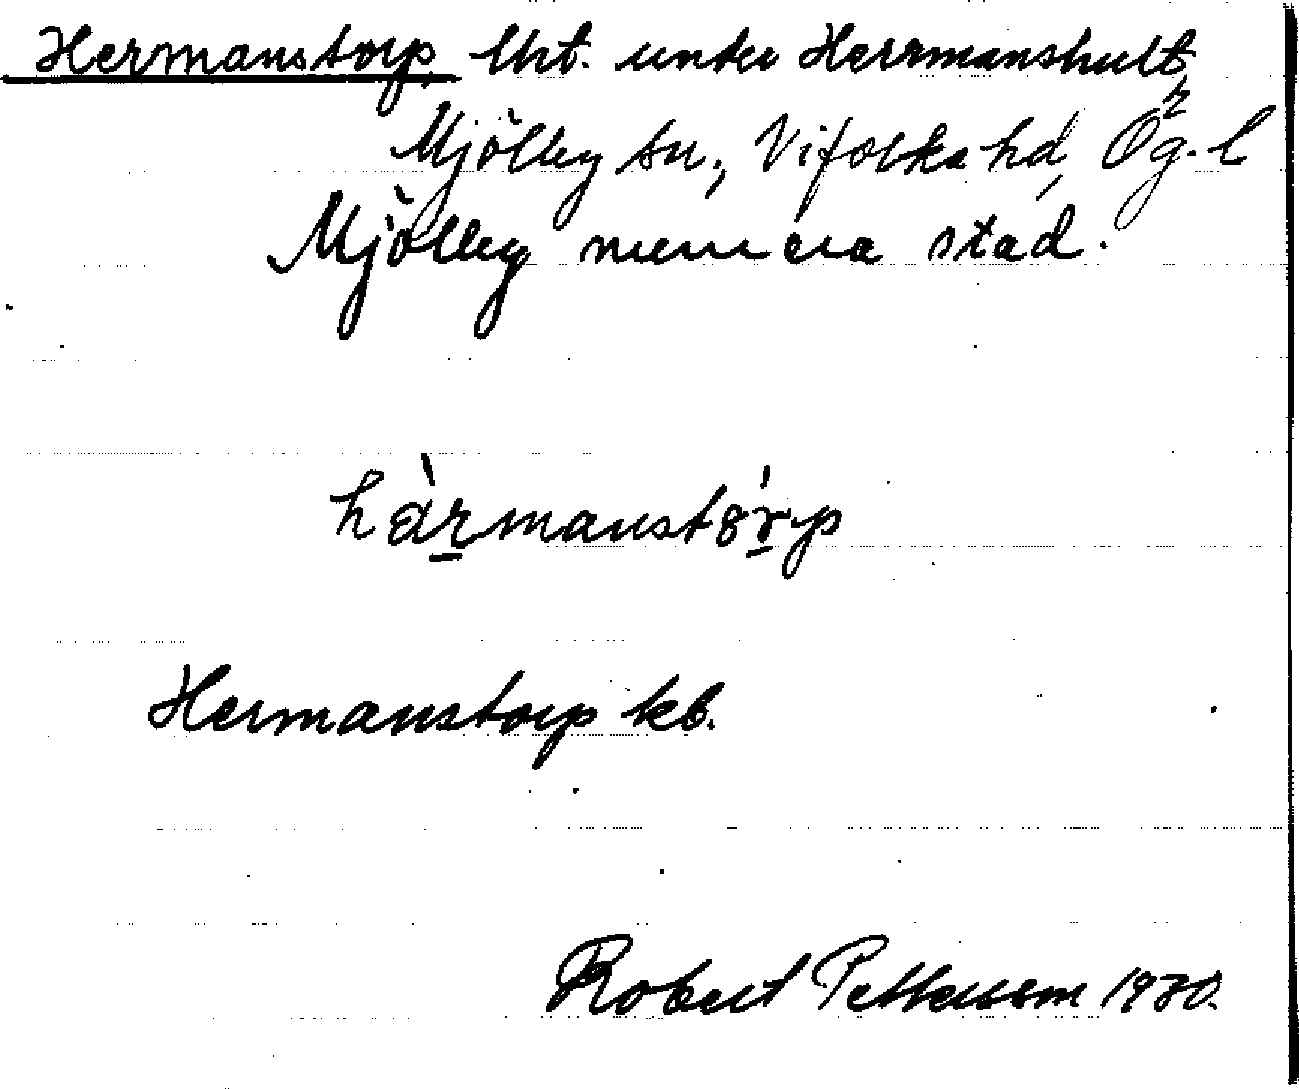 Hermanstorp, lht. under Herrmanshult,
Mjölby sn., Vifolka hd, Ög. l
Mjölby numera stad.
hàrmanstórp
Hermanstorp kb.
Robert Pettersson 1930.